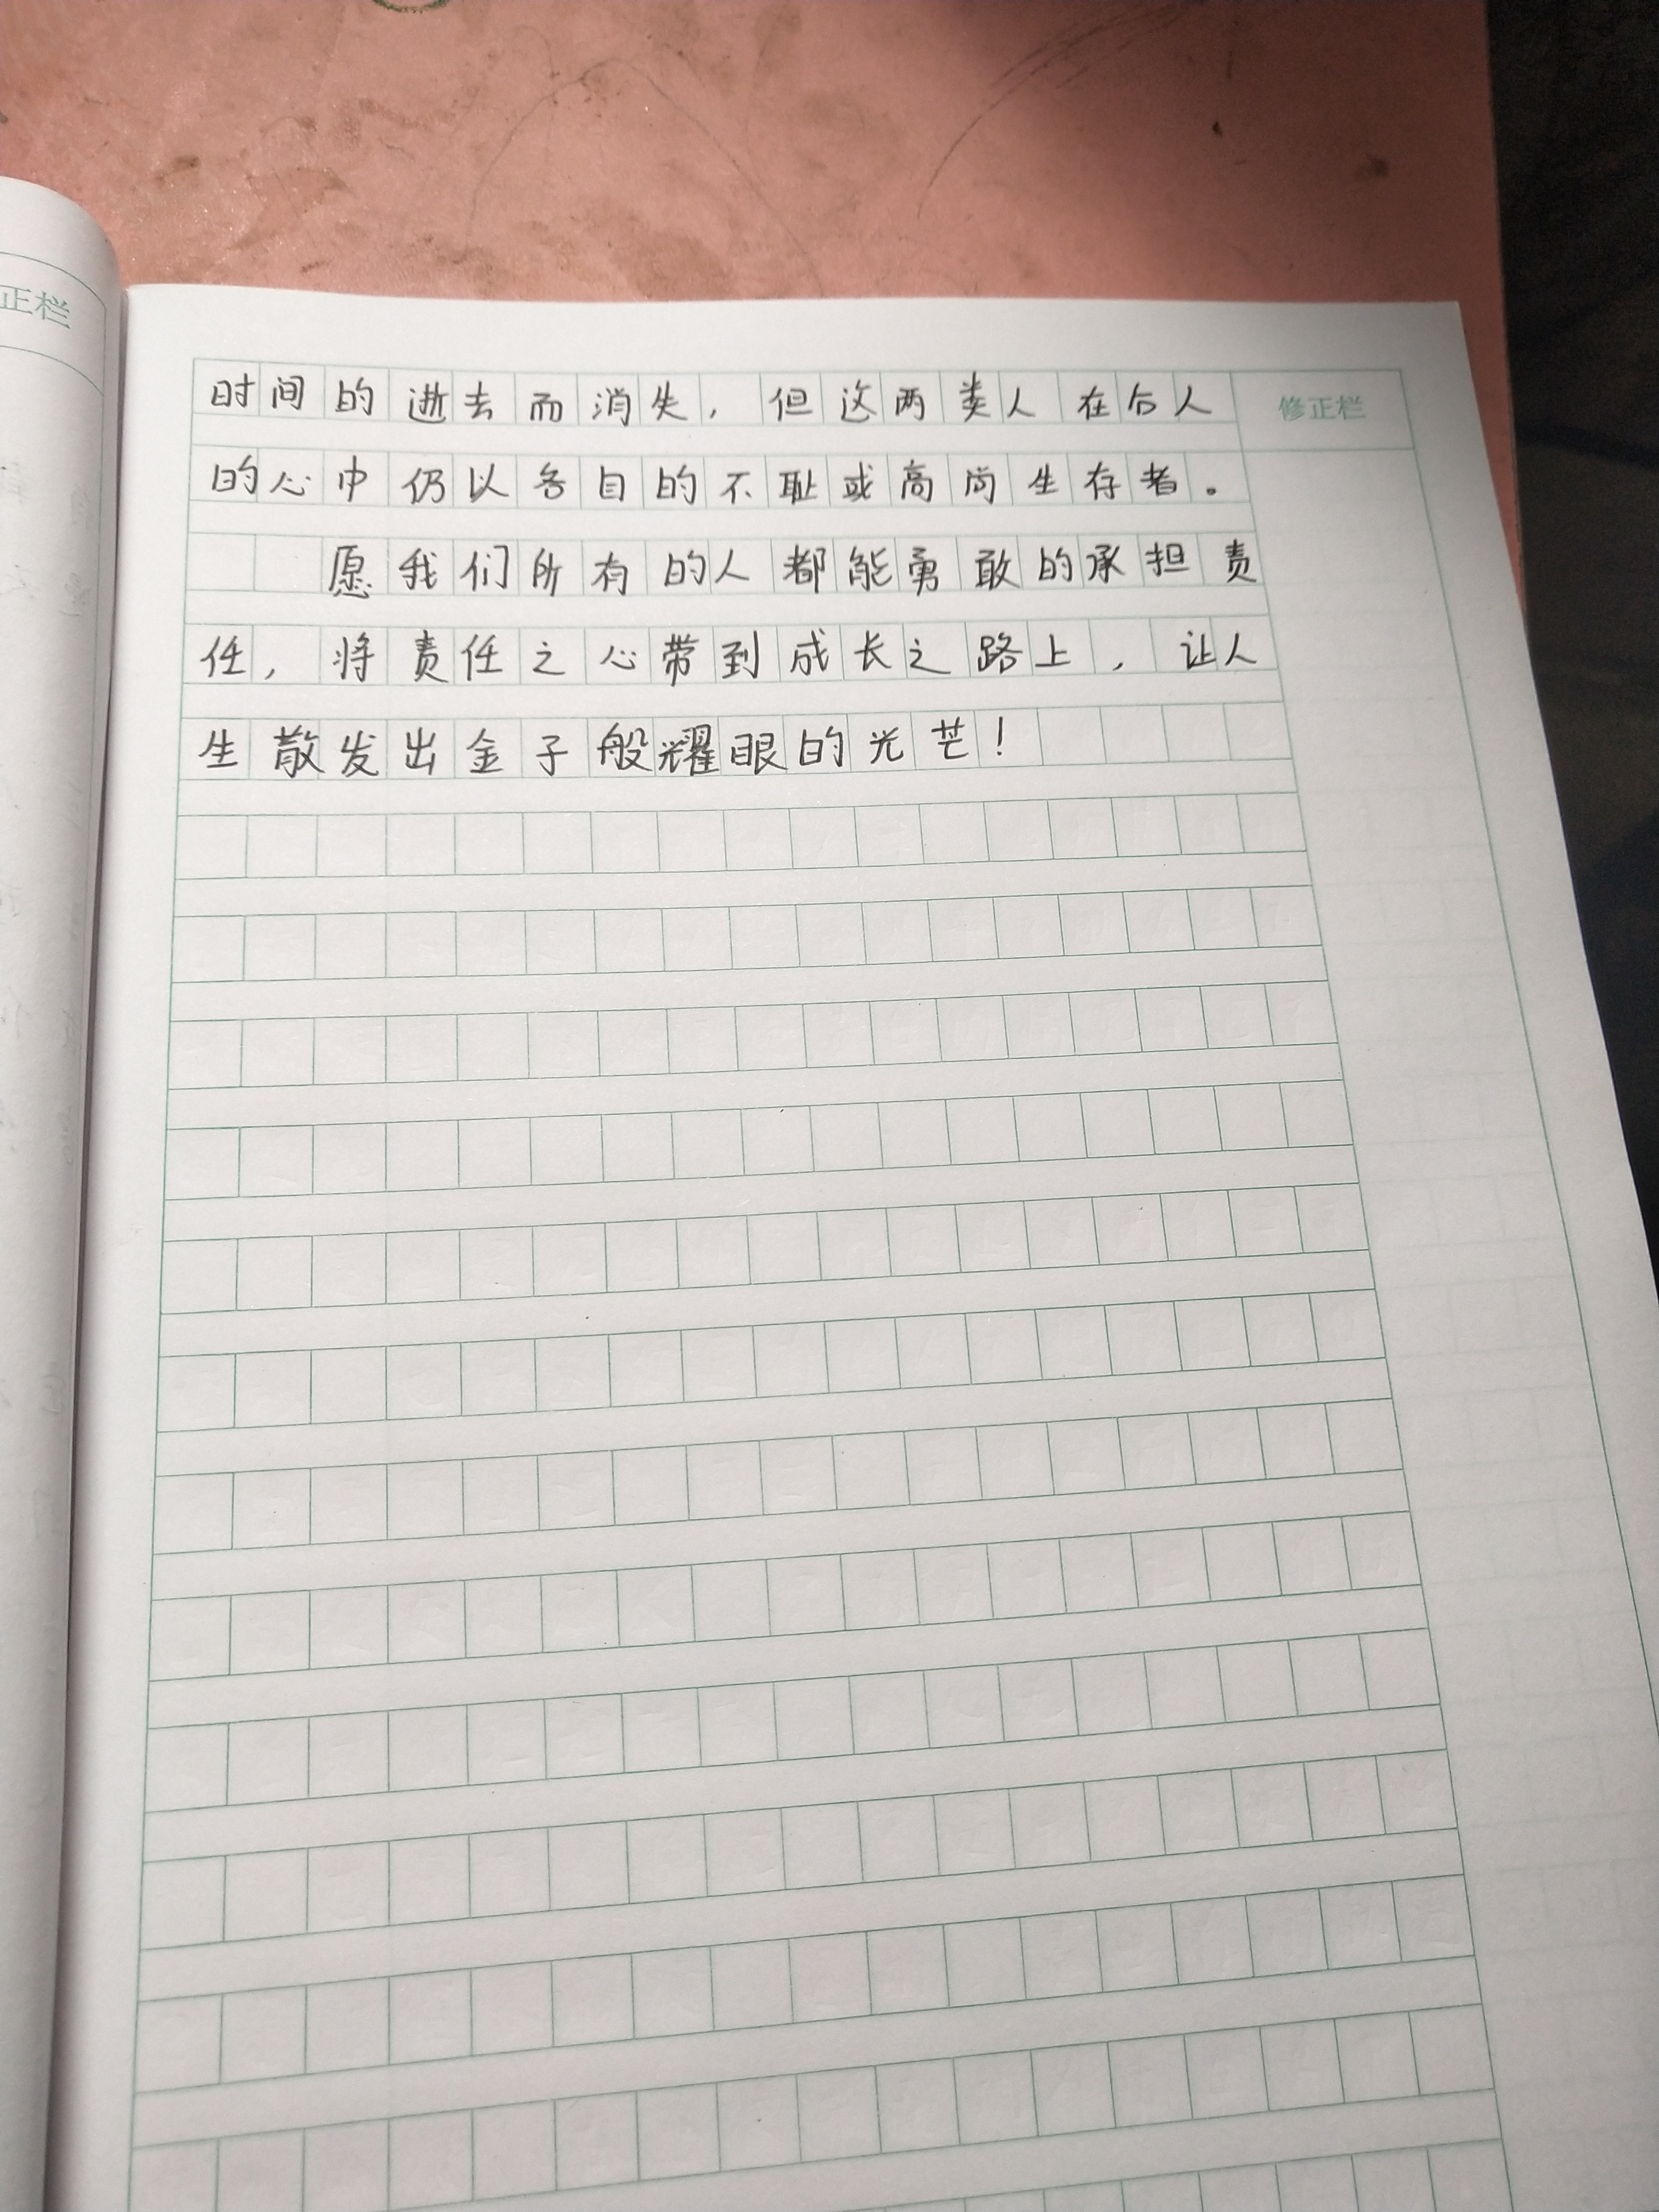 正栏
时间的逝去而消失，但这两类人在后人
修正栏
的心中仍以各自的不耻或高尚生存者。
愿我们所有的人都能勇敢的承担责
任，将责任之心带到成长之路上，让人
生散发出金子般耀眼的光芒！